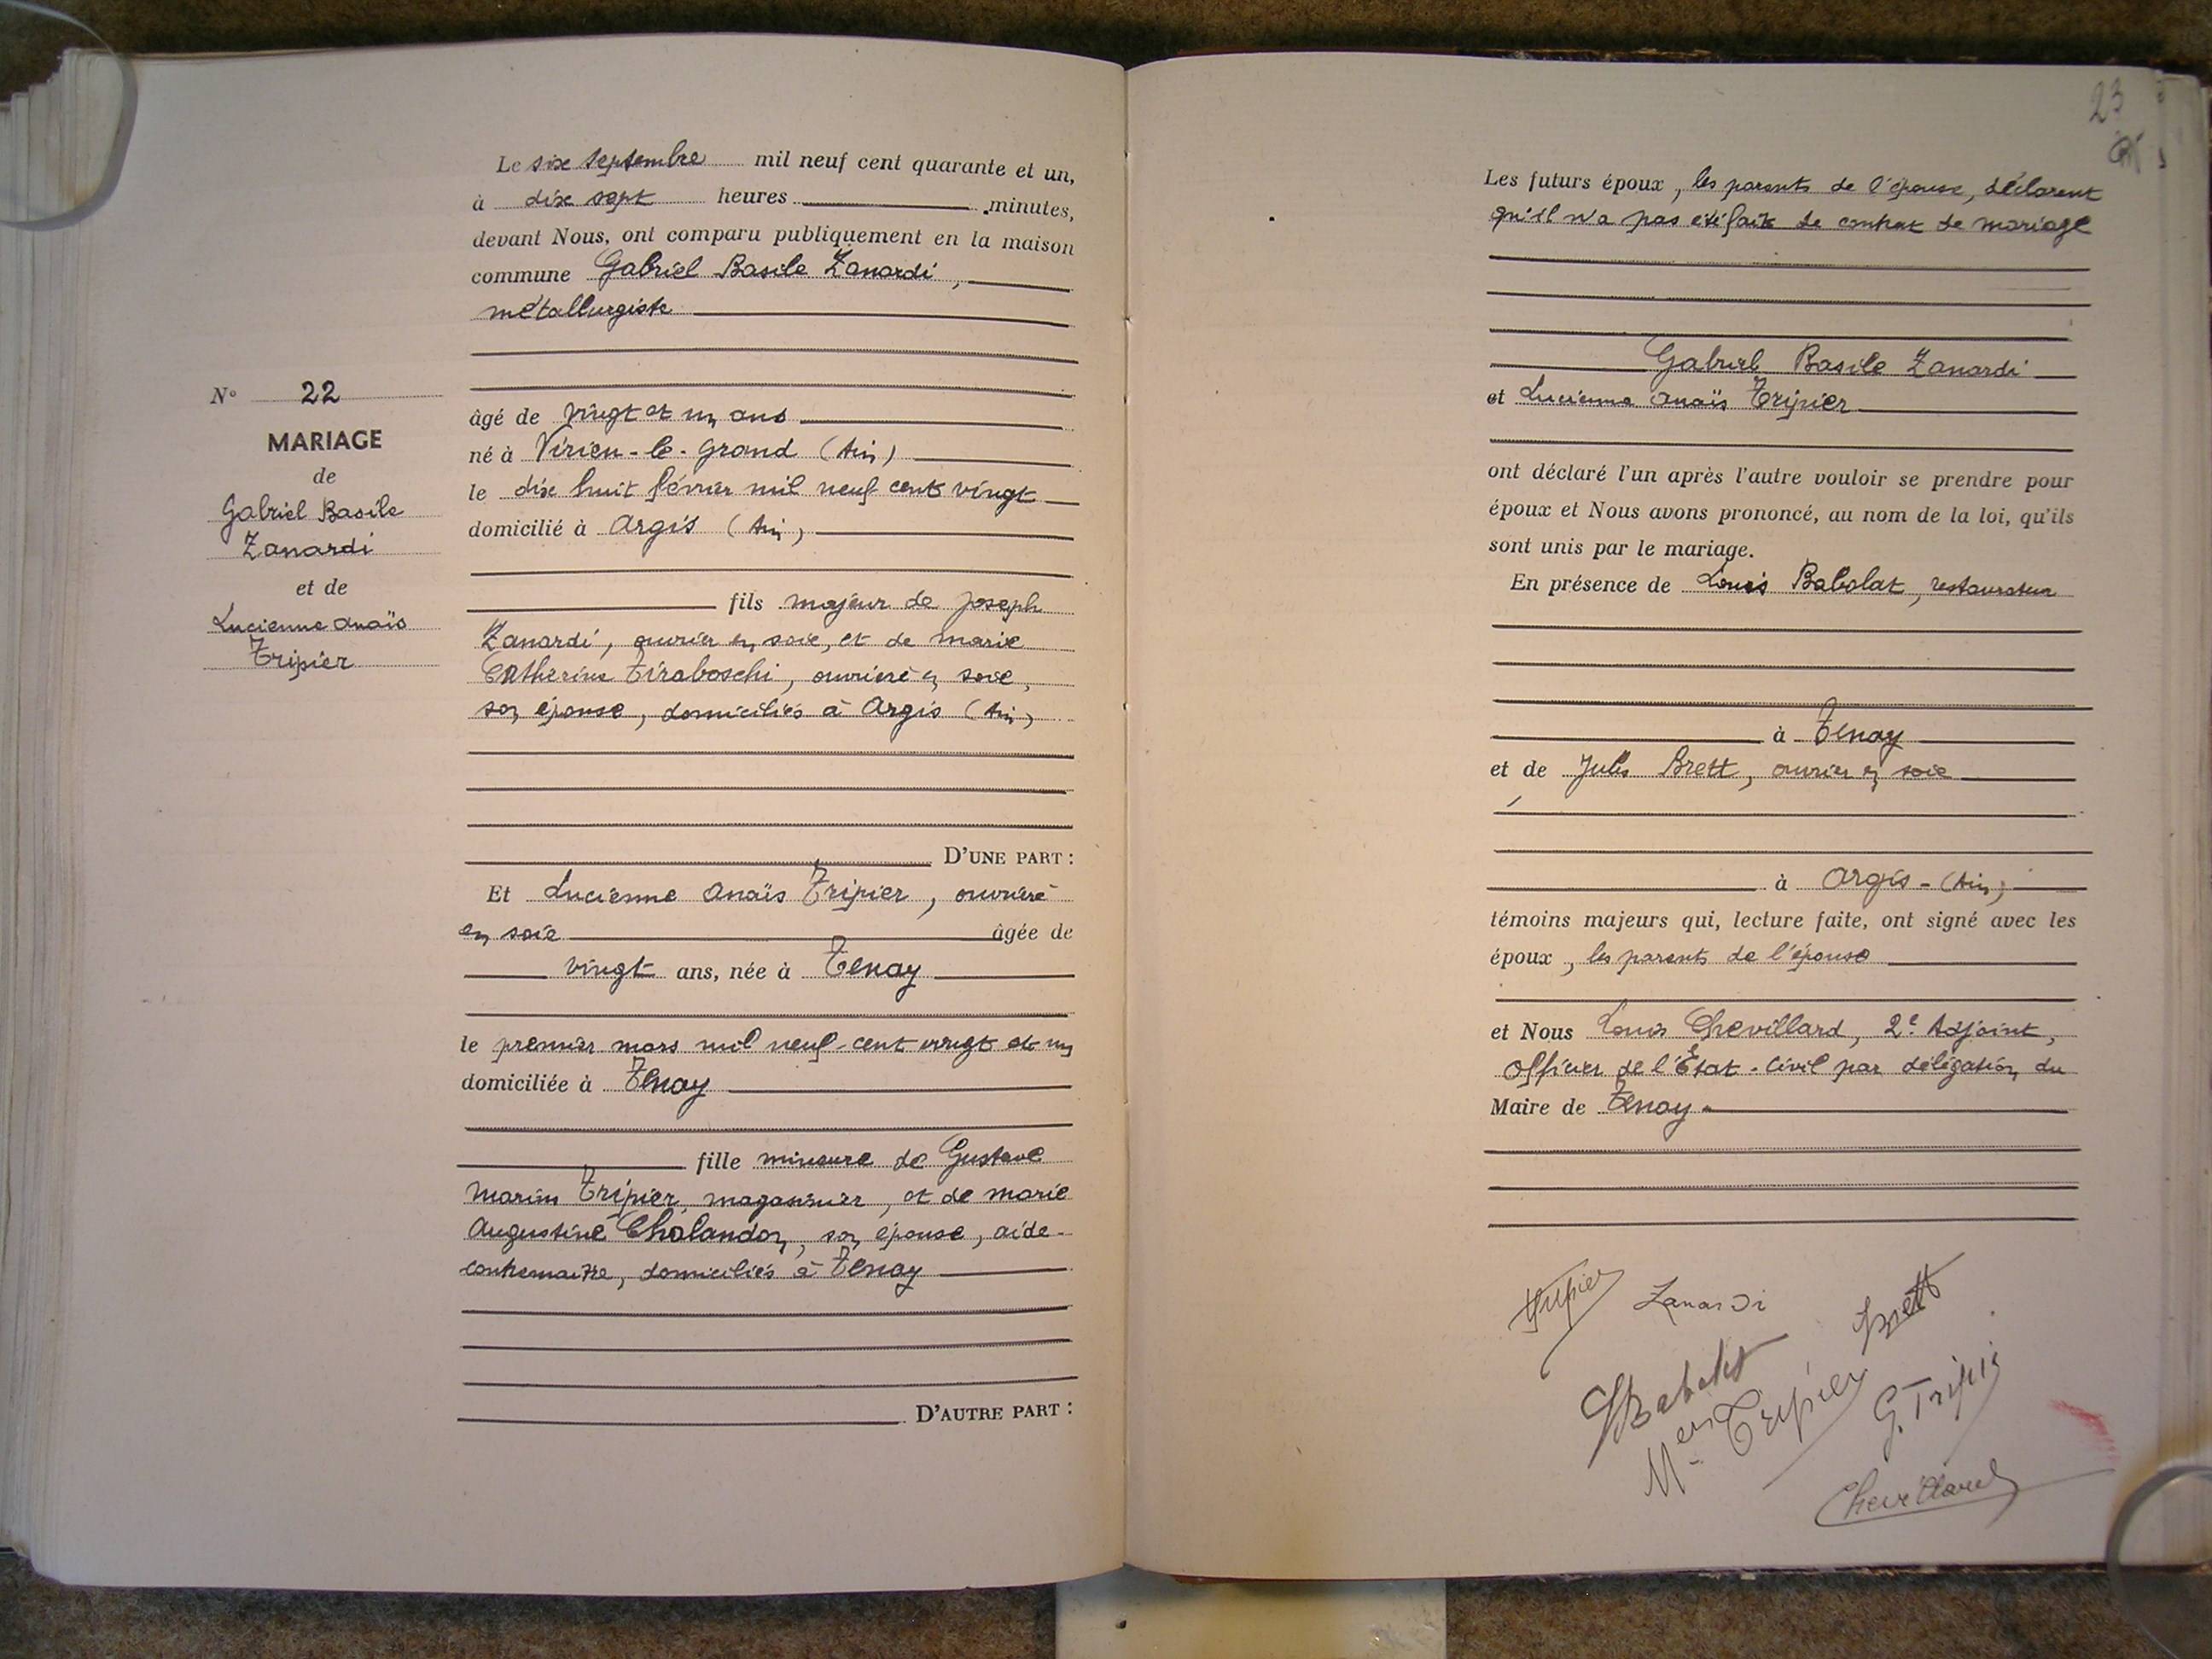 Le six septembre mil neuf cent quarante et un,
à dix sept heures minutes,
devant Nous, ont comparu publiquement en la maison
commune Gabriel Basile Zanardi,
métallurgiste
N° 22
MARIAGE
de
Gabriel Basile
Zanardi
et de
Lucienne Anaïs
Tripier
âgé de vingt et un ans
né à Virieu-le-Grand (Ain)
le dix huit février mil neuf cent vingt
domicilié à Argis (Ain)
fils majeur de Joseph
Zanardi, ouvrier en soie, et de Marie
Catherine Tiraboschi, ouvrière en soie,
son épouse, domiciliés à Argis (Ain)
D'UNE PART :
Et Lucienne Anaïs Tripier, ouvrière
en soie âgée de
vingt ans, née à Tenay
le premier mars mil neuf-cent vingt et un
domiciliée à Tenay
fille mineure de Gustave
Marius Tripier, magasinier, et de Marie
Augustine Chalandon, son épouse, aide-
contremaitre, domiciliés à Tenay
D'AUTRE PART :
23
Les futurs époux, les parents de l'épouse, déclarent
qu'il n'a pas été fait de contrat de mariage
Gabriel Basile Zanardi
et Lucienne Anaïs Tripier
ont déclaré l'un après l'autre vouloir se prendre pour
époux et Nous avons prononcé, au nom de la loi, qu'ils
sont unis par le mariage.
En présence de Louis Babolat, restaurateur
à Tenay
et de Jules Brett, ouvrier en soie
à Argis - (Ain)
témoins majeurs qui, lecture faite, ont signé avec les
époux, les parents de l'épouse
et Nous Louis Chevillard, 2e Adjoint,
Officier de l'État-Civil par délégation du
Maire de Tenay.
Tripier Zanardi Brett
Babolat
Tripier G. Tripier
Chevillard